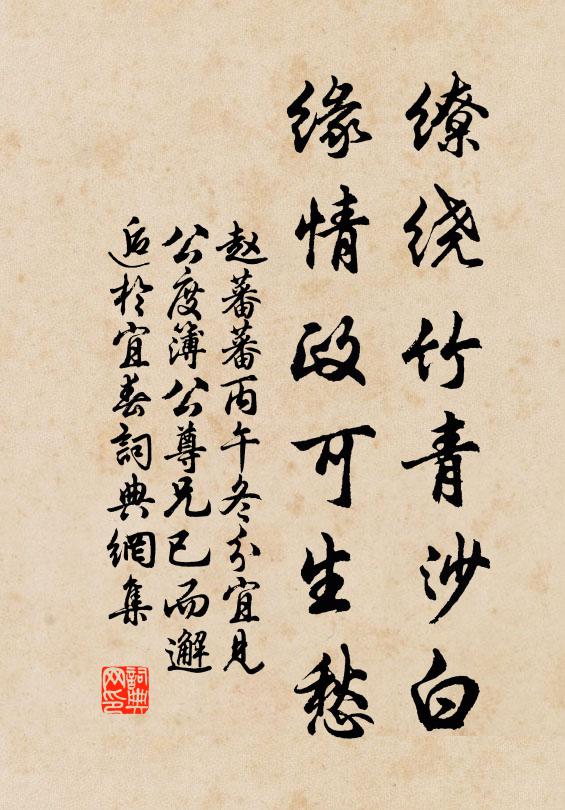 缭绕竹青沙白
缘情政可生愁
赵蕃蕃丙午冬分宜见
公度簿公尊兄已而邂
逅于宜春詞典網集
詞典
网印